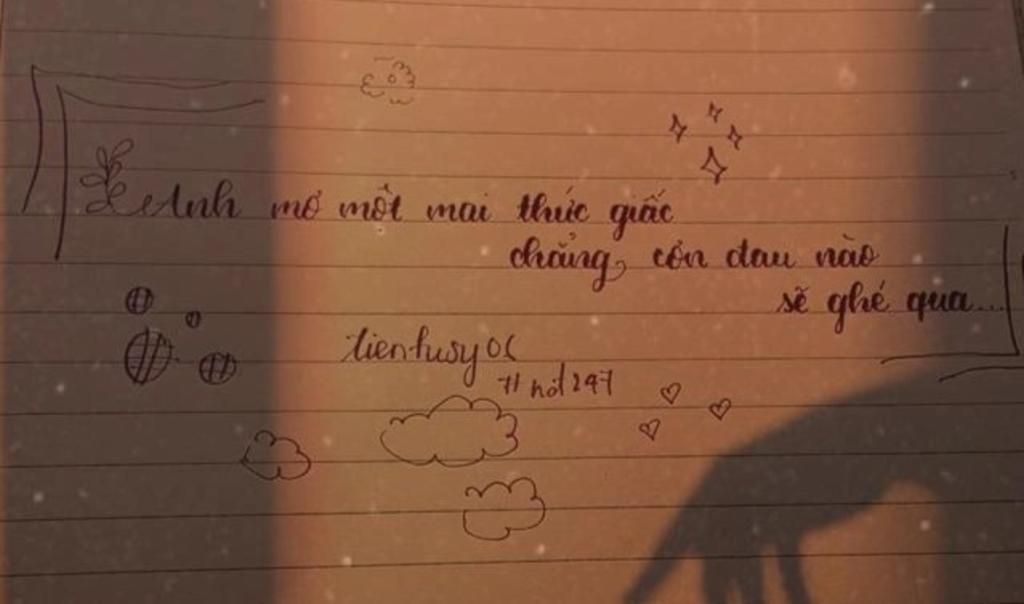 Anh mơ một mai thức giấc
chẳng cơn đau nào
sẽ ghé qua...
# nơt247